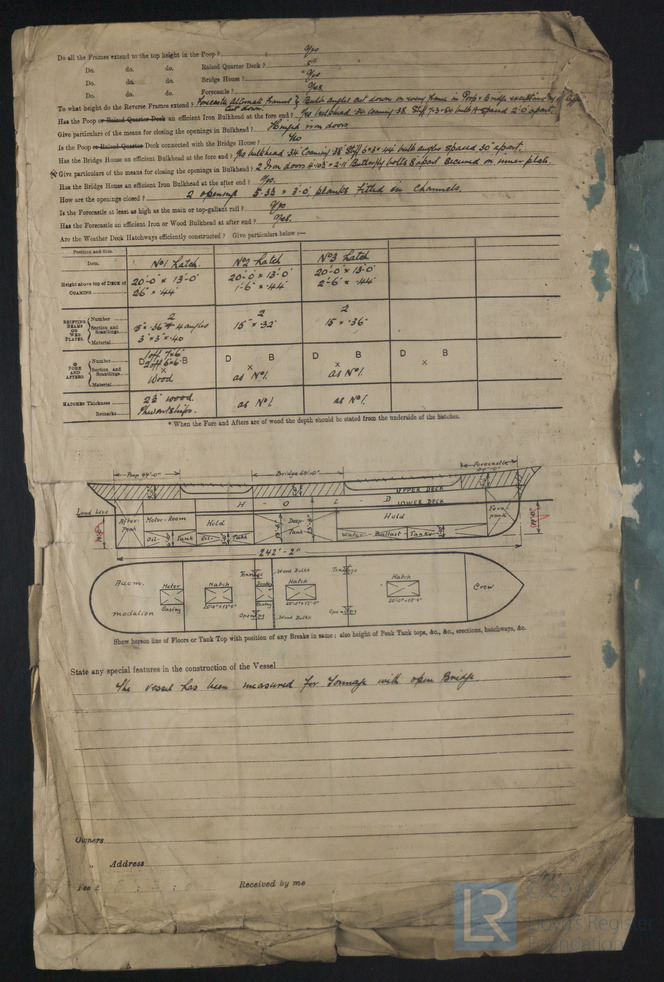 Do all the Frames extend to the top height in the Poop? Yes
Do. do. do. Raised Quarter Deck?
Do. do. do. Bridge House? Yes
Do. do. do. Forecastle? Yes.
To what height do the Reverse Frames extend? Forecastle Alternate Frames & Bulb angles cut down on every frame in Poop & Bridge
cut down.
Has the Poop or Raised Quarter Deck an efficient Iron Bulkhead at the fore end? Yes bulkhead .34 Coaming .38 Stiff 7·3·50 bulb A spaced 2'-0" apart.
Give particulars of the means for closing the openings in Bulkhead? Hinged iron doors
Is the Poop or Raised Quarter Deck connected with the Bridge House? No
Has the Bridge House an efficient Iron Bulkhead at the fore end? Yes bulkhead .34 Coaming .38 Stiff 6×3×.44 bulb angles spaced 30" apart.
Give particulars of the means for closing the openings in Bulkhead? 2 Iron doors Butterfly bolts 8 apart secured on inner plate.
Has the Bridge House an efficient Iron Bulkhead at the after end? Yes.
How are the openings closed? 2 openings 5.3½ × 3-0 planks fitted in Channels.
Is the Forecastle at least as high as the main or top-gallant rail? Yes
Has the Forecastle an efficient Iron or Wood Bulkhead at after end? Yes.
Are the Weather Deck Hatchways efficiently constructed? Give particulars below:—
Position and Size. Item. No 1 hatch. No 2 hatch No 3 hatch
Height above top of DECK of COAMING 20'-0" × 13'-0" 20'-0" × 13'-0" 20'-0" × 13'-0"
26" × .44" 1'-6" × .44" 2'-6" × .44"
SHIFTING BEAMS OR WEB PLATES. Number 2 2 2
Section and Scantlings 15" × .36" 4 angles 15" × .32" 15" × .36"
Material 3" × 3" × .40
FORE AND AFTERS Number D B D B D B D B
Section and Scantlings × × × ×
Material Wood as No 1. as No 1.
HATCHES Thickness 2½" wood. as No 1. as No 1.
Remarks Thwartships.
* When the Fore and Afters are of wood the depth should be stated from the underside of the hatches.
Poop 44'-0" Bridge Forecastle
UPPER DECK
LOWER DECK
H O L D
Load line
After-peak Motor-Room Hold Deep-Tank Hold Fore peak
Oil Tank Oil Tank Water-Ballast Tanks
242'-2"
Accom, modation Motor Casing Hatch Tonnage Opening Wood Bulk Hatch Tonnage Opening Hatch Crew
20'-0" × 13'-0" Wood Bulk 20'-0" × 13'-0" 20'-0" × 13'-0"
Show hereon line of Floors or Tank Top with position of any Breaks in same; also height of Peak Tank tops, &c., &c., erections, hatchways, &c.
State any special features in the construction of the Vessel
The vessel has been measured for tonnage with open Bridge.
Owners
„ Address
Fee £ : :
Received by me
LR
Lloyd's Register
Foundation